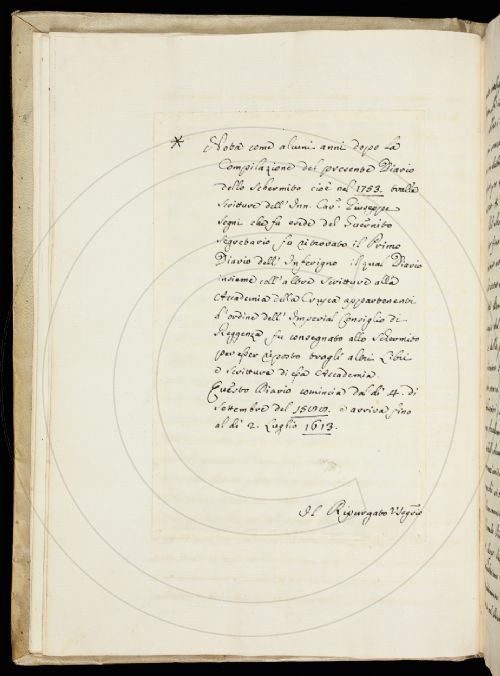 * Nota come alcuni anni dopo la
Compilazione del presente Diario
dello Schermito cioè nel 1753. tralle
Scritture dell'Inn. Cav.r Giuseppe
Segni che fu erede del Guernito
Segretario fu ritrovato il Primo
Diario dell'Inferigno il qual Diario
insieme coll'altre Scritture alla
Accademia della Crusca appartenenti
d'ordine dell'Imperial Consiglio di
Reggenza fu consegnato allo Schermito
per esser riposto tragli altri Libri
e Scritture di essa Accademia.
Questo Diario comincia dal dì 4. di
Settembre del e arriva fino
al dì 2. Luglio 1613.
Il Ripurgato